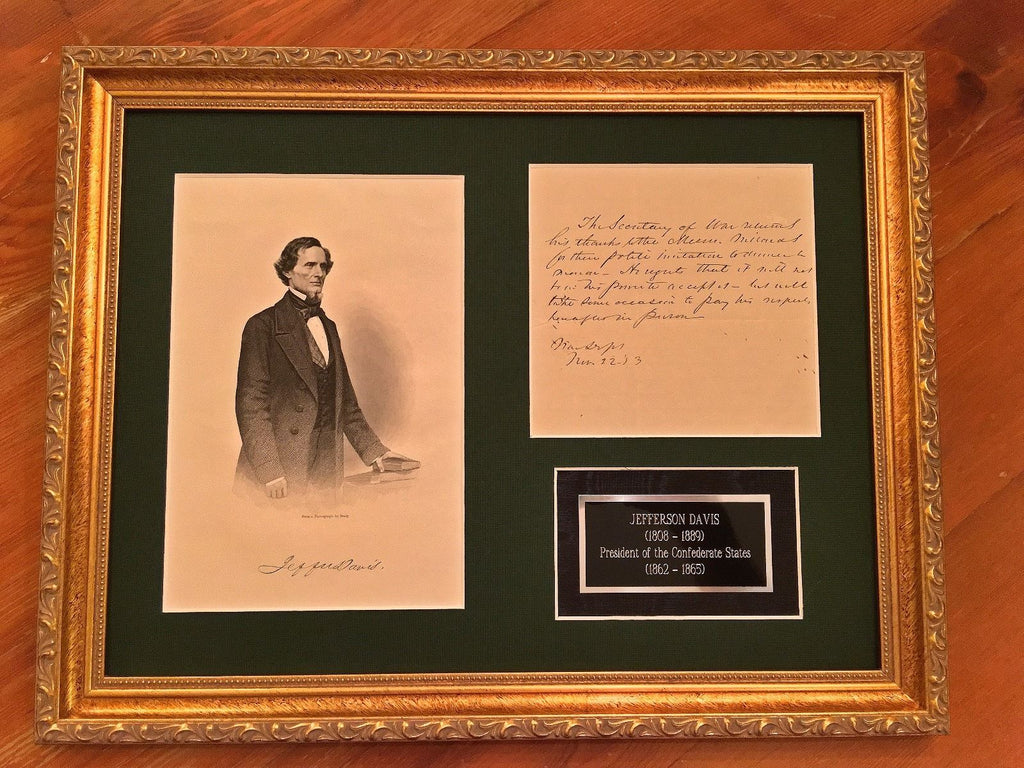 From a Photograph by Brady
Jeffer Davis.
The Secretary of War returns
his thanks to the Messrs.
for their polite invitation to dinner
that it will not
be in his power to accept it – but will
take some occasion to pay his respects
hereafter in person
Nov. 22
JEFFERSON DAVIS
(1808 - 1889)
President of the Confederate States
(1862 - 1865)